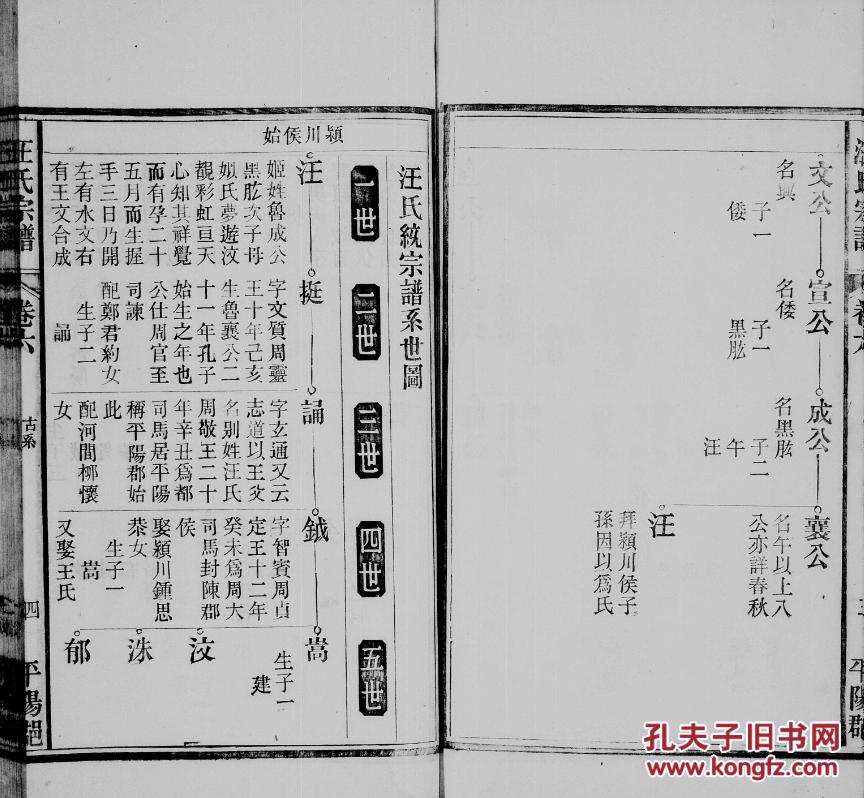 汪氏宗譜
卷六
平陽郡
文公
名興
子一
倭
宣公
名倭
子一
黑肱
成公
名黑肱
子二
午
汪
襄公
名午以上八
公亦詳春秋
汪
拜潁川侯子
孫因以爲氏
汪氏統宗譜系世圖
一世
二世
三世
四世
五世
潁川侯始
汪
姬姓魯成公
黑肱次子母
姒氏夢遊汶
覩彩虹亘天
心知其祥覺
而有孕二十
五月而生握
手三日乃開
左有水文右
有王文合成
挺
字文質周靈
王十年己亥
生魯襄公二
十一年孔子
始生之年也
公仕周官至
司諫
配鄭君約女
生子二
誦
誦
字玄通又云
志道以王父
名别姓汪氏
周敬王二十
年辛丑爲都
司馬居平陽
稱平陽郡始
此
配河間栁懷
女
鉞
字智賓周貞
定王十二年
癸未爲周大
司馬封陳郡
侯
娶潁川鍾思
恭女
生子一
嵩
又娶王氏
嵩
生子一
建
汶
洙
郁
汪氏宗譜
卷六
古系
四
平陽
孔夫子旧书网
www.kongfz.com